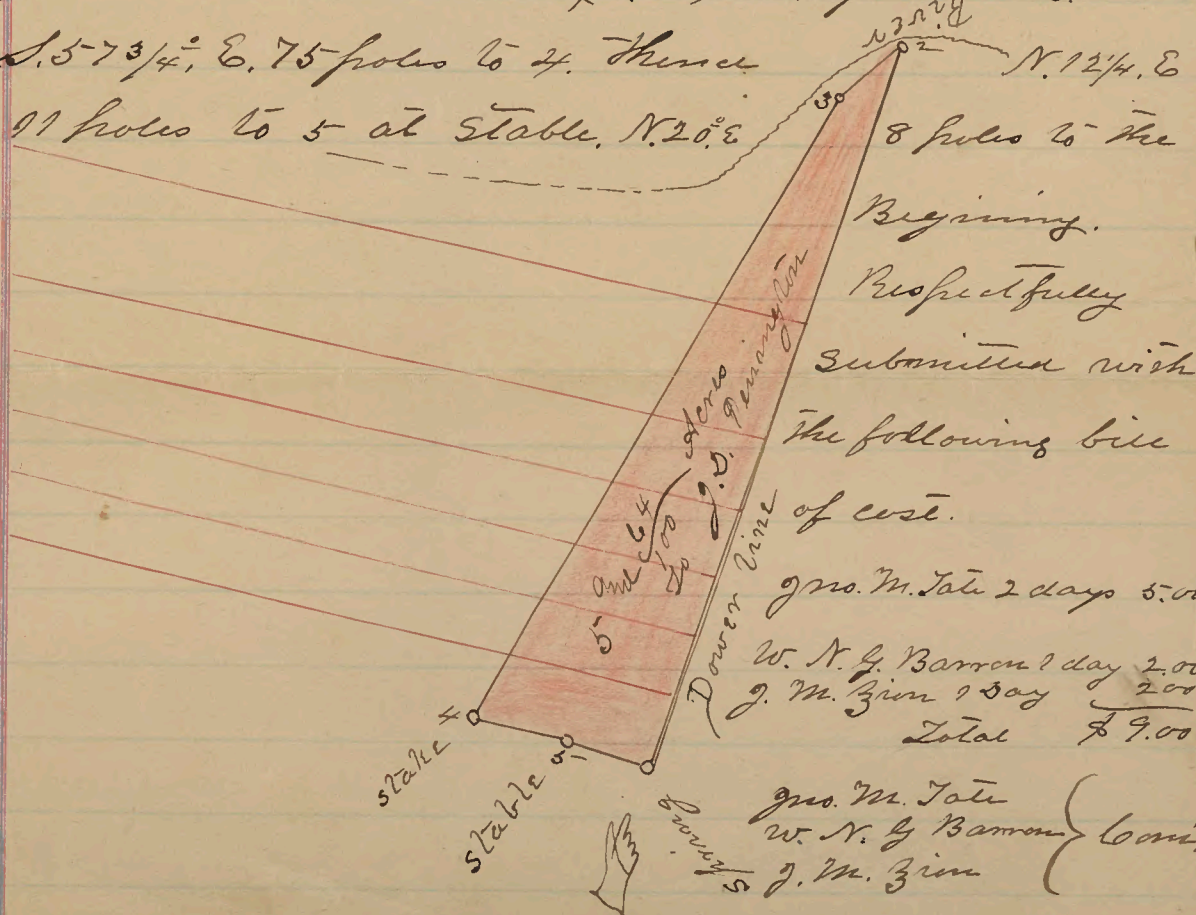 River
S. 57 3/4°, E. 75 poles to 4. Thence
N. 12 1/4. E
11 poles to 5 at Stable. N. 20°. E
8 poles to the
Begining.
Respectfully
Submitted with
the following bill
of cost.
Jno. M. Tate 2 days 5.00
W. N. G. Barron 1 day 2.00
J. M. Zion 1 Day 2 00
Total $ 9.00
Jno. M. Tate
W. N. G Barron
J. M. Zion
Com
2
3
5 and 64/100 Acres
To J. D. Penington
Dower line
4
stake
5
stable
1
Spring